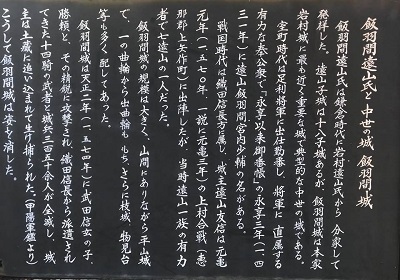 飯羽間遠山氏と中世の城 飯羽間城
飯羽間遠山氏は鎌倉時代に岩村遠山氏から 分家して
発祥した。遠山子城は十八子城あるが、飯羽間城は本家
岩村城に最も近く重要な城で典型的な中世の城である。
室町時代は足利将軍に出仕在番し、将軍に 直属する
有力な奉公衆で「永享以来御番帳」の永享三年(一四
三一年)に遠山飯羽間宮内少輔の名がある。
戦国時代は織田信長の属し、城主遠山友信は元亀
元年(一五七〇年 一説に元亀三年)の上村合戦(恵
那郡上矢作町)に出陣したが、当時遠山一族の有力
者で七遠山の一人だった。
飯羽間城の規模は大きく、山間にありながら平山城
で、一の曲輪から出曲輪をもち、さらに枝城、物見台
等を多く配してあった。
飯羽間城は天正二年(一五七四年)に武田信玄の子、
勝頼と、その精鋭に攻撃され、織田信長から派遣され
てきた十四騎の武者と城兵三百五十余人が全滅し、城
主は土蔵に追い込まれて生け捕りされた。(甲陽軍鑑より)
こうして飯羽間城は姿を消した。